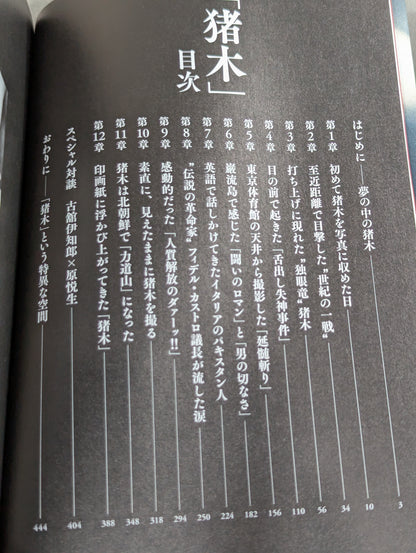 「猪木」
目次
はじめに――夢の中の猪木 3
第1章 初めて猪木を写真に収めた日 10
第2章 至近距離で目撃した"世紀の一戦" 34
第3章 打ち上げに現れた"独眼竜"猪木 56
第4章 目の前で起きた「舌出し失神事件」 110
第5章 東京体育館の天井から撮影した「延髄斬り」 156
第6章 巌流島で感じた「闘いのロマン」と「男の切なさ」 182
第7章 英語で話しかけてきたイタリアのパキスタン人 224
第8章 "伝説の革命家"フィデル・カストロ議長が流した涙 250
第9章 感動的だった「人質解放のダァーッ!!」 294
第10章 素直に、見えたままに猪木を撮る 318
第11章 猪木は北朝鮮で「力道山」になった 348
第12章 印画紙に浮かび上がってきた「猪木」 388
スペシャル対談 古舘伊知郎×原悦生 404
おわりに――「猪木」という特異な空間 444